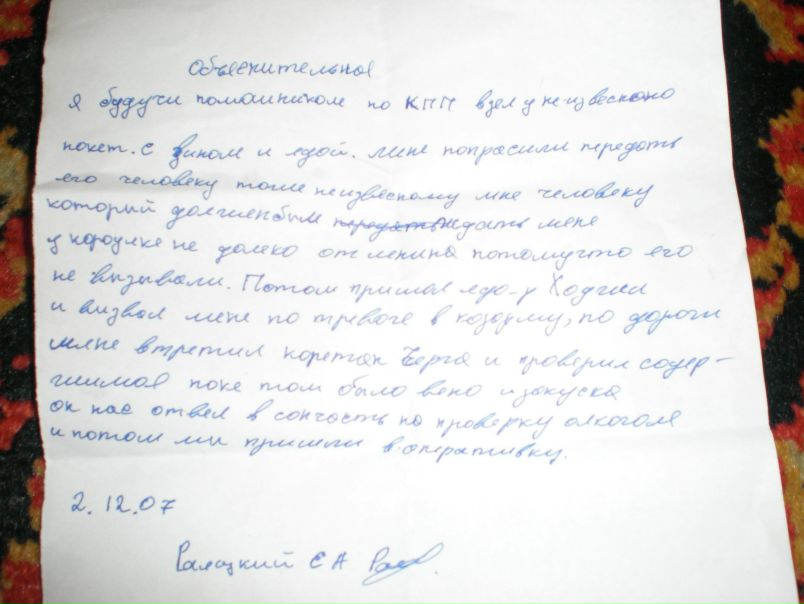 Обьеснительноя
я будучи помошником по КПП взел у не извесного
покет. с вином и едой. мне попрасили передать
его человеку тоже неизвесному мне человеку
который должен был ждать мене
у короулке не далеко от ленина потомучто его
не вызывали. Потом пришол ядо-р Ходжи
и визвал мене по тревоге в козорму, по дороги
мне втретил Черга и проверил содер-
жимоя поке том было вено изокуска
он нас отвел в сончасть по проверку алкоголя
и потом ми пришли в оперативку.
2.12.07
ЕА